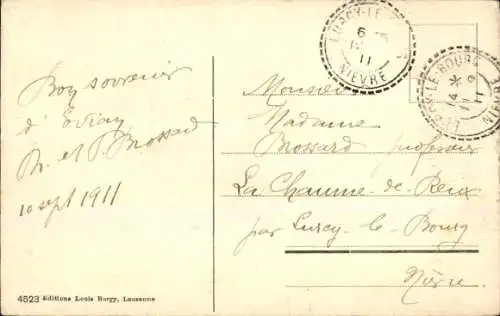 Bon souvenir
d'Evian
M. et P. Mossard
10 sept 1911
4523 Editions Louis Burgy, Lausanne
LURCY-LE-
6
11
NIEVRE
LURCY-LE-BOURG
11
NIEVRE
Monsieur
Madame
Mossard professeur
La Chaume-de-
par Lurcy-le-Bourg
Nièvre.